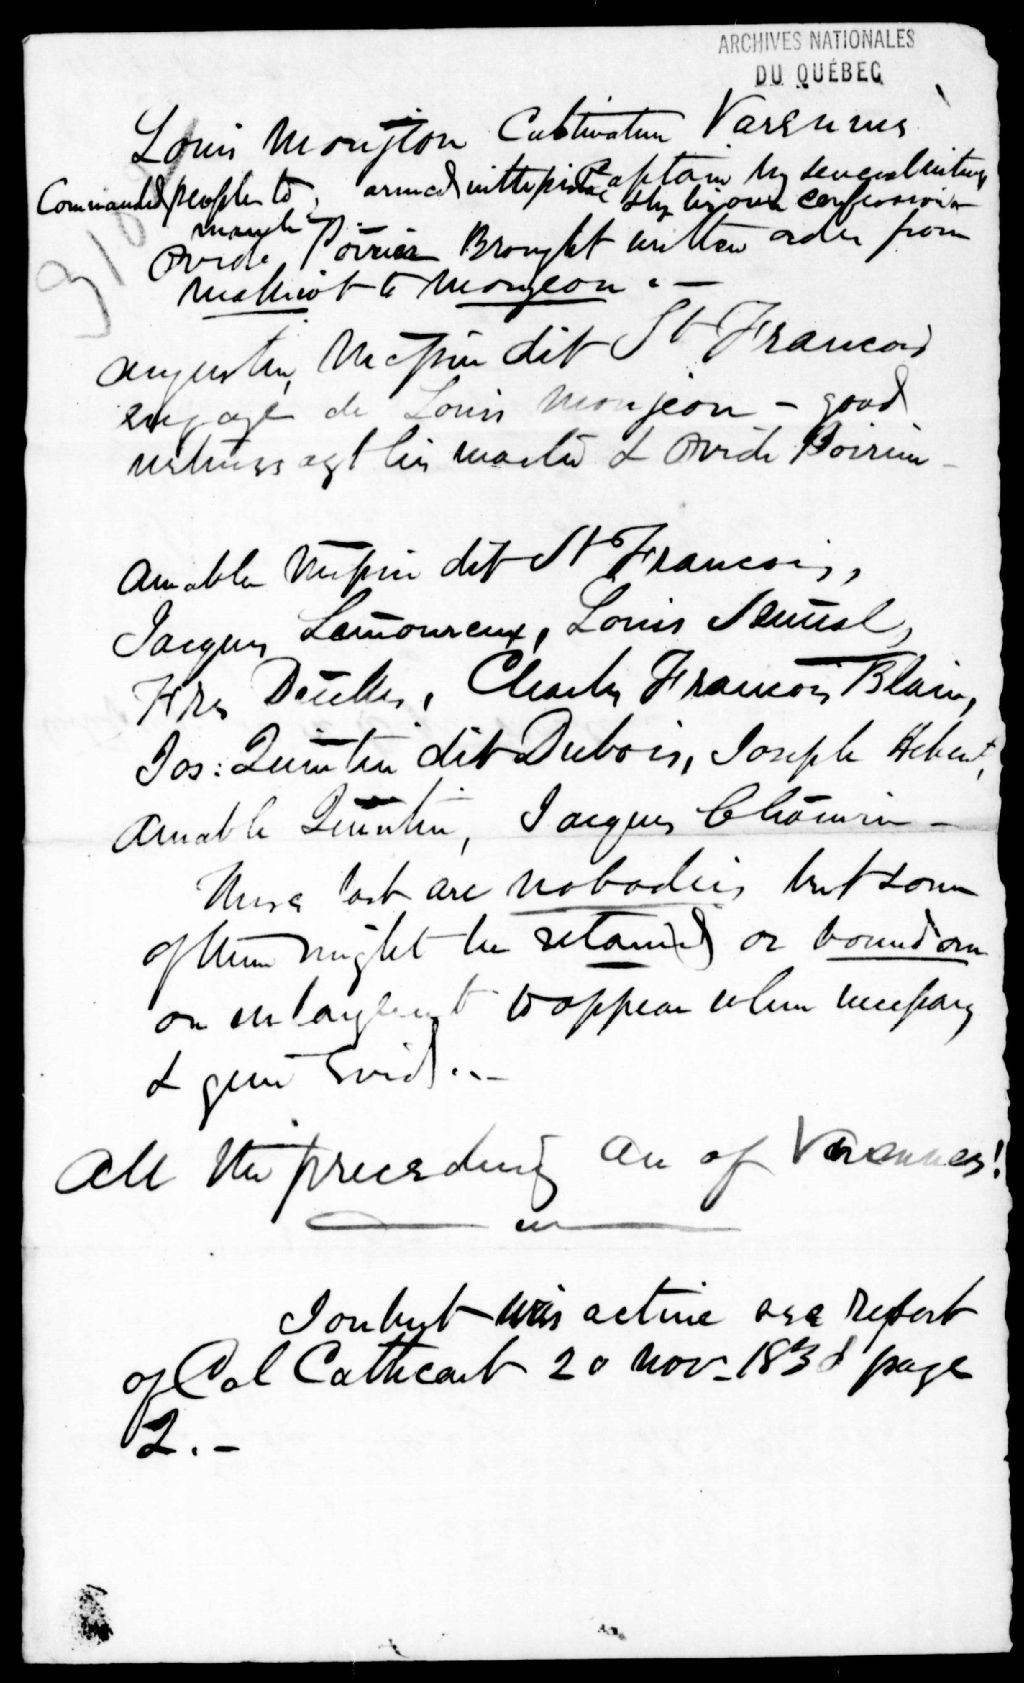 ARCHIVES NATIONALES
DU QUÉBEC
Louis Mongeon Cultivateur Varennes
Commanded people to armed with pistol Captain by several witness
march by his own confession
Ovide Poirier Brought written order from
Malhiot to Mongeon . —
Augustin Messier dit St Francois
engagé de Louis Mongeon - good
witness agt his master & Ovide Poirier -
Amable Messier dit St Francois,
Jacques Lamoureux, Louis Senecal,
Frs Charles Francois Blain,
Jos: Quintin dit Dubois, Joseph Hebert,
Amable Quintin, Jacques
These last are nobodies but some
of them might be retained or bound over
on enlargement to appear when necessary
& give Evid. . -
All the preceding are of Varennes!
Joubert was active see Report
of Col Cathcart 20 Nov. 1838 page
2. -